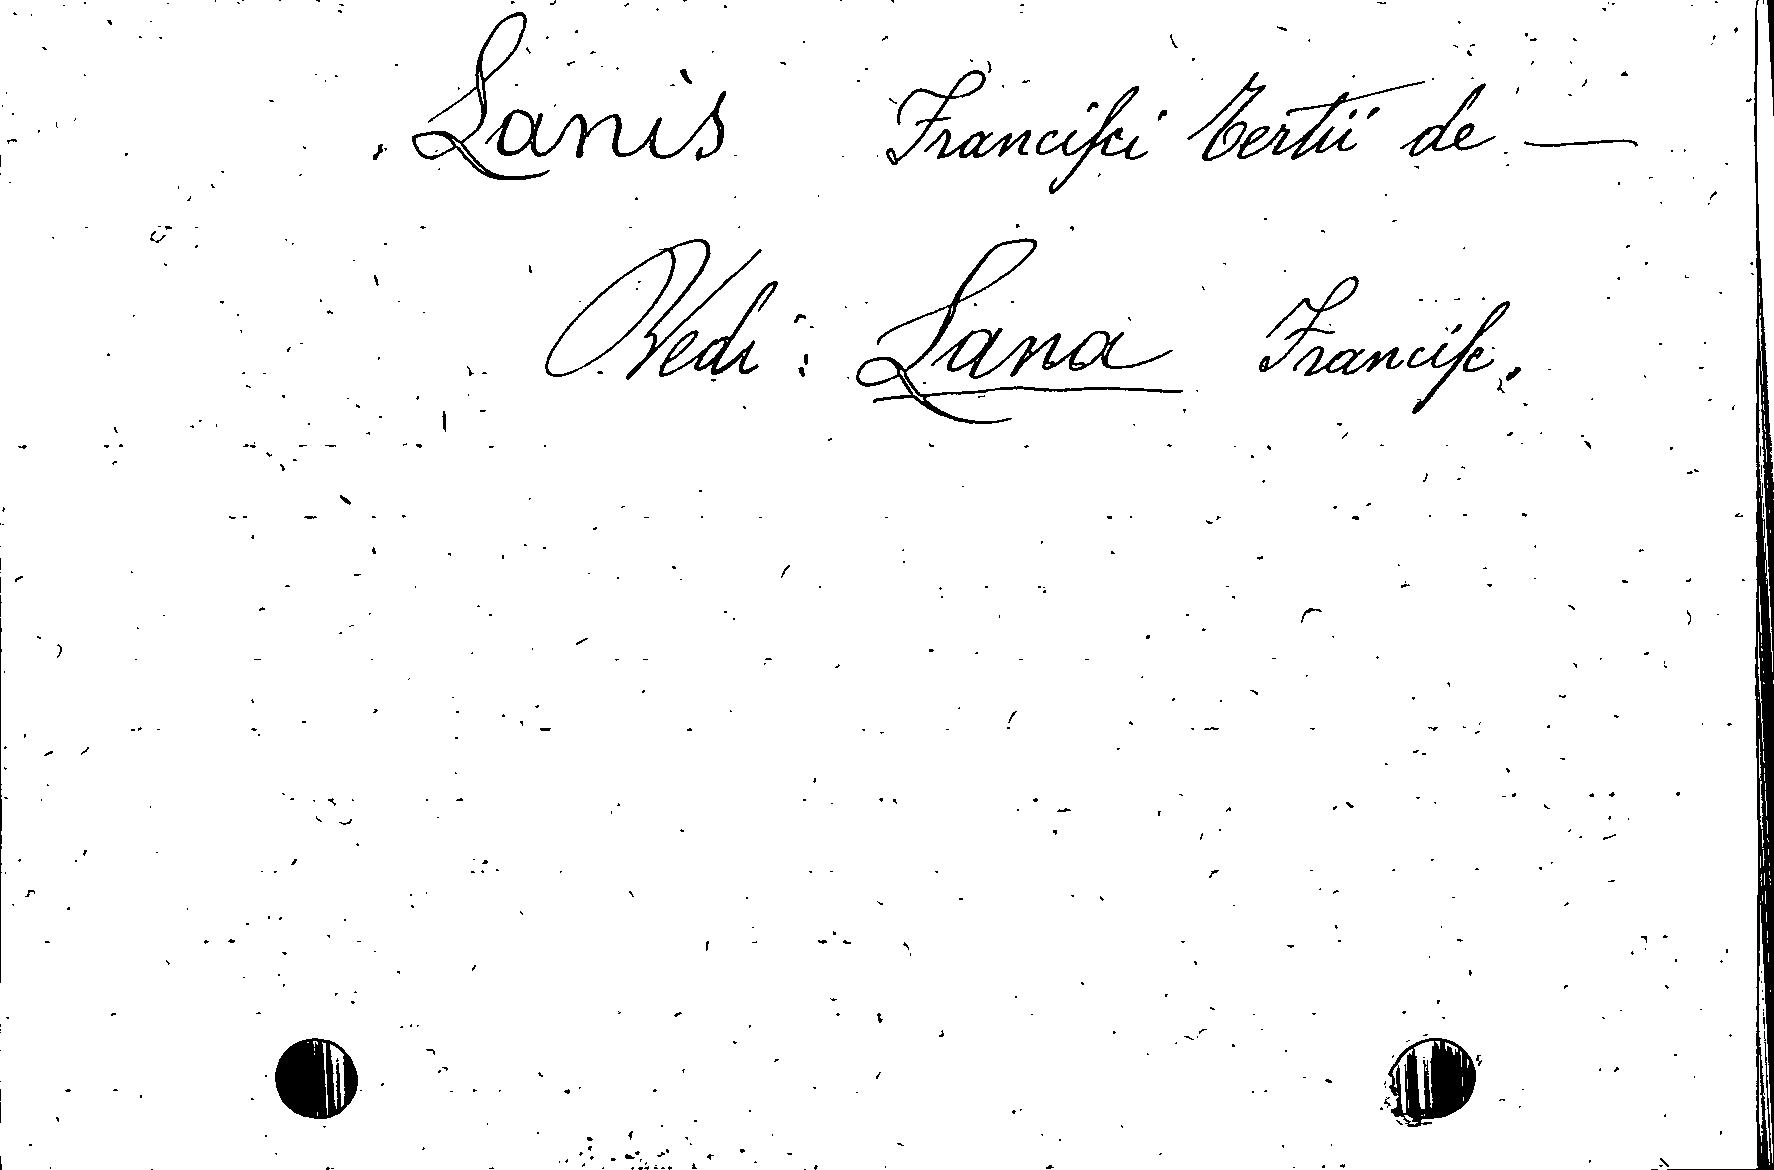 Lanis Franciſci Tertii de —
Vedi: Lana Franciſc.